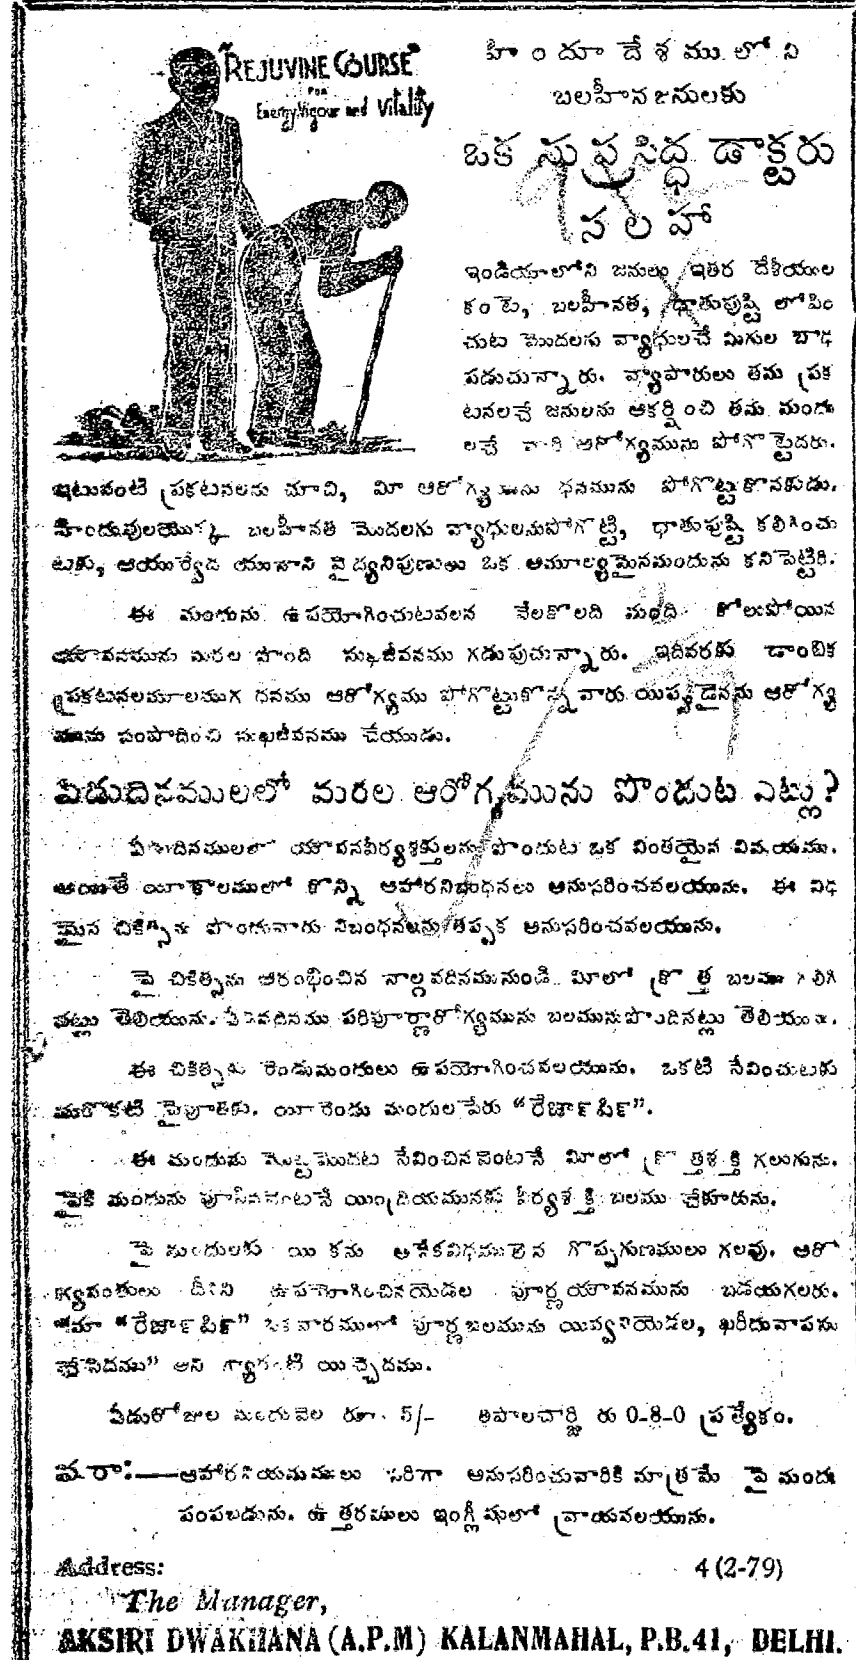 "REJUVINE COURSE"
FOR
Energy, Vigour and Vitality
హిందూదేశములోని
బలహీనజనులకు
ఒక సుప్రసిద్ధ డాక్టరు
సలహా
ఇండియాలోని జనులు ఇతర దేశీయుల
కంటె, బలహీనత, ధాతుపుష్టి లోపిం
చుట మొదలగు వ్యాధులచే మిగుల బాధ
పడుచున్నారు. వ్యాపారులు తమ ప్రక
టనలచే జనులను ఆకర్షించి తమ మందు
లచే వారి ఆరోగ్యమును పోగొట్టెదరు.
ఇటువంటి ప్రకటనలను చూచి, మీ ఆరోగ్యమును ధనమును పోగొట్టుకొనకుడు.
హిందువులయొక్క బలహీనత మొదలగు వ్యాధులనుపోగొట్టి, ధాతుపుష్టి కలిగించు
టకు, ఆయుర్వేద యూనాని వైద్యనిపుణులు ఒక అమూల్యమైనమందును కనిపెట్టిరి.
ఈ మందును ఉపయోగించుటవలన వేలకొలది మంది కోలుపోయిన
యౌవనమును మరల పొంది సుఖజీవనము గడుపుచున్నారు. ఇదివరకు డాంబిక
ప్రకటనలమూలముగ ధనము ఆరోగ్యము పోగొట్టుకొన్నవారు యిప్పుడైనను ఆరోగ్య
మును సంపాదించి సుఖజీవనము చేయుడు.
ఏడుదినములలో మరల ఆరోగ్యమును పొందుట ఎట్లు?
ఏడుదినములలో యౌవనవీర్యశక్తులను పొందుట ఒక వింతయైన విషయము.
అయితే యీకాలములో కొన్ని ఆహారనిబంధనలు అనుసరించవలయును. ఈ విధ
మైన చికిత్సను పొందువారు నిబంధనలను తప్పక అనుసరించవలయును.
పై చికిత్సను ఆరంభించిన నాల్గవదినమునుండి మీలో క్రొత్త బలము గలిగి
నట్లు తెలియును. ఏడవదినము పరిపూర్ణారోగ్యమును బలమునుపొందినట్లు తెలియును.
ఈ చికిత్సకు రెండుమందులు ఉపయోగించవలయును. ఒకటి సేవించుటకు
మరొకటి పైపూతకు. యీరెండు మందులపేరు “రేజార్‌పిర్”.
ఈ మందును మొట్టమొదట సేవించినవెంటనే మీలో క్రొత్తశక్తి గలుగును.
పైకి మందును పూసినవెంటనే యింద్రియమునకు వీర్యశక్తి బలము చేకూరును.
పై మందులకు యికను అనేకవిధములైన గొప్పగుణములు గలవు. ఆరో
గ్యవంతులు దీనిని ఉపయోగించినయెడల పూర్ణయౌవనమును బడయగలరు.
“మా “రేజార్‌పిర్” ఒకవారములో పూర్ణబలమును యివ్వనియెడల, ఖరీదువాపసు
చేసెదము” అని గ్యారంటీ యిచ్చెదము.
ఏడురోజుల మందువెల రూ. 5/- తపాలచార్జి రు 0-8-0 ప్రత్యేకం.
వ రా:—ఆహారనియమములు సరిగా అనుసరించువారికి మాత్రమే పై మందు
పంపబడును. ఉత్తరములు ఇంగ్లీషులో వ్రాయవలయును.
Address: 4 (2-79)
The Manager,
AKSIRI DWAKHANA (A.P.M) KALANMAHAL, P.B.41, DELHI.